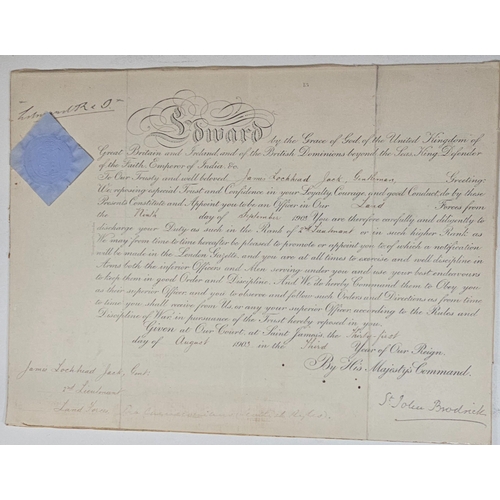 Edward R & I
Edward by the Grace of God, of the United Kingdom of
Great Britain and Ireland, and of the British Dominions beyond the Seas King, Defender
of the Faith, Emperor of India, &c.
To Our Trusty and well beloved James Lockhead Jack, Gentleman, Greeting:
We, reposing especial Trust and Confidence in your Loyalty, Courage, and good Conduct, do by these
Presents Constitute and Appoint you to be an Officer in Our Land Forces from
the day of September 1903. You are therefore carefully and diligently to
discharge your Duty as such in the Rank of 2nd Lieutenant or in such higher Rank as
We may from time to time hereafter be pleased to promote or appoint you to, of which a notification
will be made in the London Gazette, and you are at all times to exercise and well discipline in
Arms both the inferior Officers and Men serving under you and use your best endeavours
to keep them in good Order and Discipline. And We do hereby Command them to Obey you
as their superior Officer, and you to observe and follow such Orders and Directions as from time
to time you shall receive from Us, or any your superior Officer, according to the Rules and
Discipline of War, in pursuance of the Trust hereby reposed in you.
Given at Our Court, at Saint James's, the thirty-first
day of August 1903, in the Third Year of Our Reign.
By His Majesty's Command.
James Lockhead Jack, Gent.
2nd Lieutenant
Land Forces
St John Brodrick